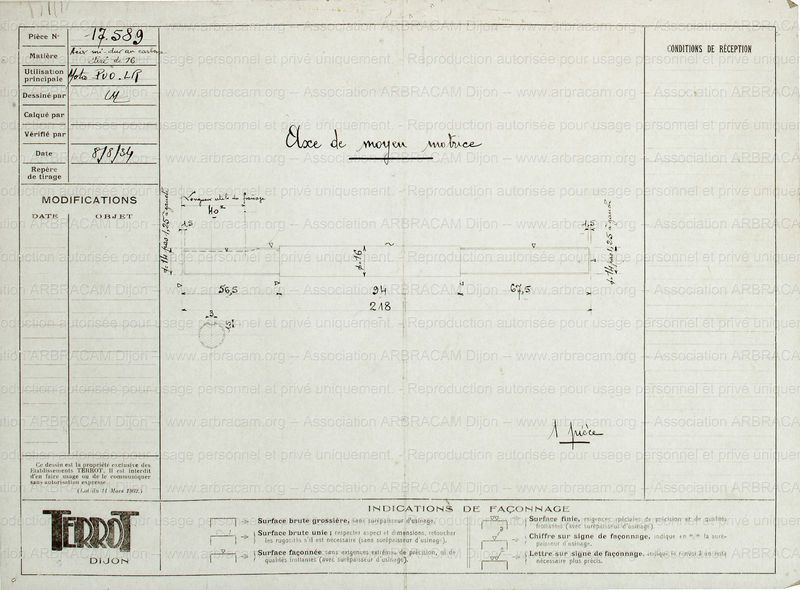 Pièce N° 17.589
Matière Acier mi-dur au carbone
étiré de 16
Utilisation principale Moto PUO.LR
Dessiné par
Calqué par
Vérifié par
Date 8/8/34
Repère de tirage
MODIFICATIONS
DATE OBJET
CONDITIONS DE RÉCEPTION
Axe de moyeu motrice
Longueur utile de fraisage
40
1,5
1,5
ϕ 14 pas 1,25 à gauche
ϕ 14 pas 1,25 à gauche
ϕ 16
56,5 94 67,5
218
3
1 pièce
Ce dessin est la propriété exclusive des
Etablissements TERROT. Il est interdit
d'en faire usage ou de le communiquer
sans autorisation expresse.
(Loi du 11 Mars 1902.)
TERROT
DIJON
INDICATIONS DE FAÇONNAGE
Surface brute grossière, sans surépaisseur d'usinage.
Surface brute unie; respecter aspect et dimensions, retoucher
les rugosités s'il est nécessaire (sans surépaisseur d'usinage).
Surface façonnée sans exigences extrêmes de précision, ni de
qualités frottantes (avec surépaisseur d'usinage).
Surface finie, exigences spéciales de précision et de qualités
frottantes (avec surépaisseur d'usinage).
Chiffre sur signe de façonnage, indique en m/m la suré-
paisseur d'usinage.
Lettre sur signe de façonnage, indique le renvoi à un texte
nécessaire plus précis.
www.arbracam.org – Association ARBRACAM Dijon – www.arbracam.org – Association ARBRACAM Dijon
Reproduction autorisée pour usage personnel et privé uniquement.